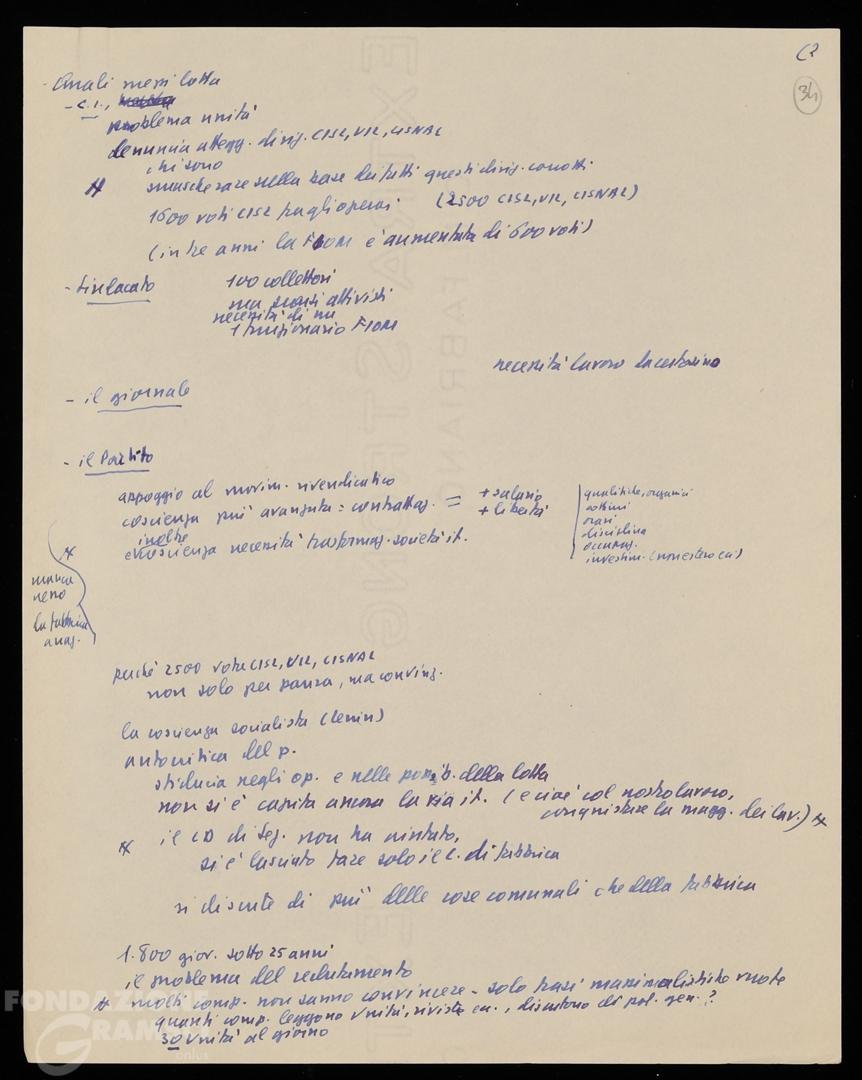 (2
34
- Quali mezzi lotta
- C.I.,
problema unità
denuncia attegg. dirig. CISL, UIL, CISNAL
chi sono
smascherare sulla base dei fatti questi dirig. corrotti
1600 voti CISL tra gli operai (2500 CISL, UIL, CISNAL)
(in tre anni la FIOM è aumentata di 600 voti)
- Sindacato
100 collettori
ma scarsi attivisti
necessità di un
1 funzionario FIOM
necessità lavoro da certosino
- il giornale
- il Partito
appoggio al movim. rivendicativo
coscienza più avanzata = contrattaz. = + salario
+ libertà
qualifiche, organici
cottimi
orari
disciplina
occupaz.
investim. (non estero ca)
inoltre
coscienza necessità trasformaz. società it.
manca
nesso
la fabbrica
avanz.
perché 2500 votano CISL, UIL, CISNAL
non solo per paura, ma convinz.
la coscienza socialista (Lenin)
autocritica del p.
sfiducia negli op. e nelle possib. della lotta
non si è capita ancora la via it. (e cioè col nostro lavoro,
conquistare la magg. dei lav.)
il CD di Sez. non ha aiutato,
si è lasciato fare solo il C. di fabbrica
si discute di più delle cose comunali che della fabbrica
1.800 giov. sotto 25 anni
il problema del reclutamento
molti comp. non sanno convincere - solo frasi massimalistiche vuote
quanti comp. leggono Unità, riviste ecc., discutono di pol. gen.?
30 Unità al giorno
EXTRA STRONG
FABRIANO
FONDAZIONE
GRAMSCI
onlus